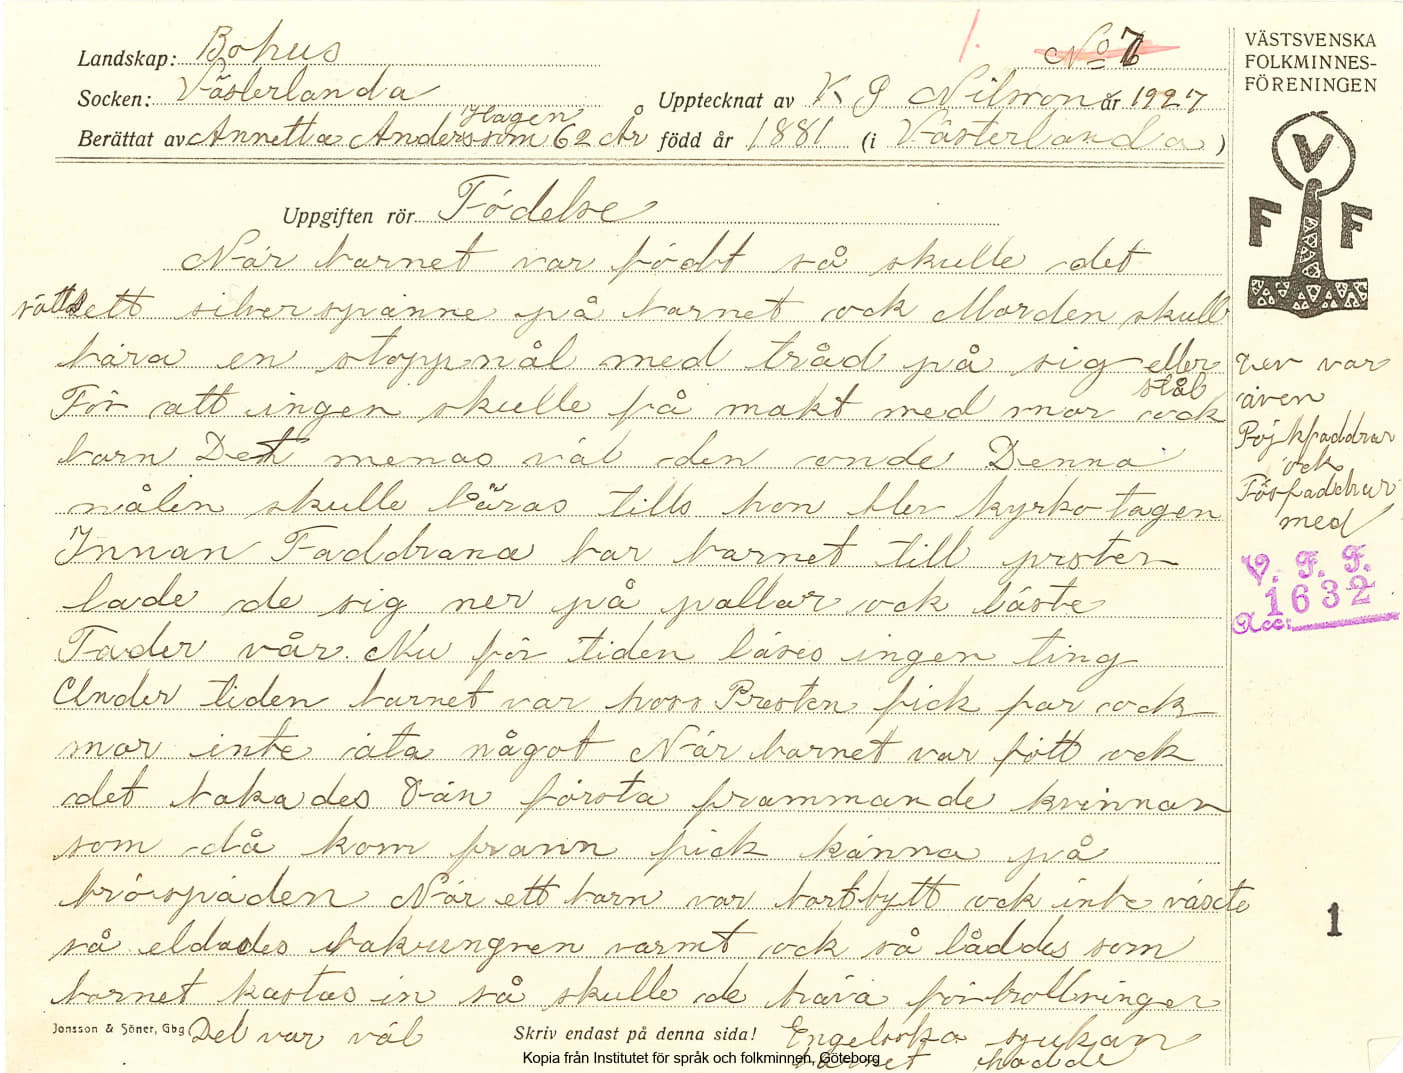 Landskap: Bohus
Socken: Västerlanda
Berättat av Annetta Andersson Hagen 62 År
1.
No 7
Upptecknat av K G Nilsson år 1927
född år 1881 (i Västerlanda)
Uppgiften rör Födelse
När barnet var födt så skulle det
sättas ett silverspänne på barnet ock Morden skull
bära en stoppnål med tråd på sig eller stål
För att ingen skulle få makt med mor ock
barn Det menas väl den onde Denna
nålen skulle bäras tills hon blev kyrko tagen
Innan Faddrana bar barnet till presten
lade de sig ner på pallar ock läste
Fader vår. Nu för tiden läses ingen ting
Under tiden barnet var hoss Presten fick far ock
mor inte äta något När barnet var fött ock
det bakades den första frammande kvinnan
som då kom frann fick känna på
bröspaden När ett barn var bortbytt ock inte växte
så eldades bakungnen varmt ock så låddes som
barnet kastas in så skulle de häva förtrollningen
Det var väl Engelska sjukan
barnet hadde
Jonsson & Söner, Gbg
Skriv endast på denna sida!
Kopia från Institutet för språk och folkminnen, Göteborg
VÄSTSVENSKA
FOLKMINNES-
FÖRENINGEN
V
F F
Der var
även
Pojkfaddrar
ock
Tösfaddrar
med
V. F. F.
1632
Acc:
1